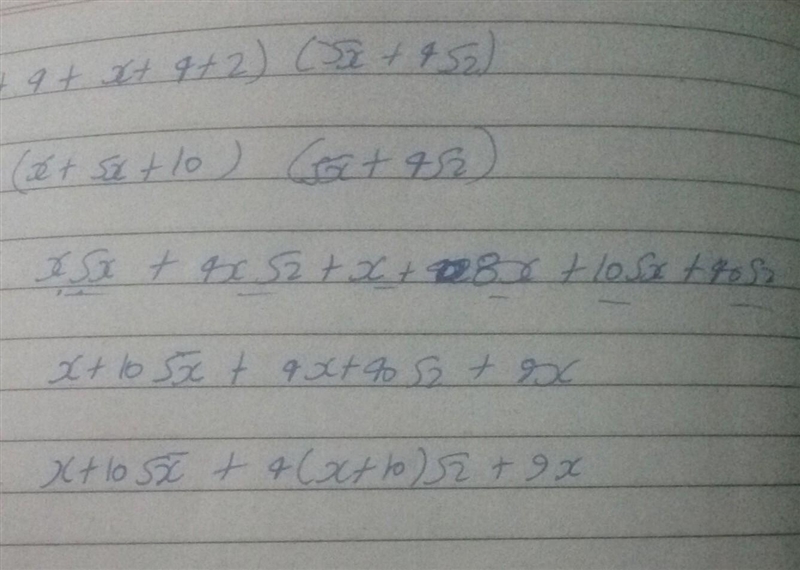 + 4 + x + 4 + 2) (√x + 4√2)
(x + √x + 10) (√x + 4√2)
x√x + 4x√2 + x + 8x + 10√x + 40√2
x + 10√x + 4x + 40√2 + 9x
x + 10√x + 4(x + 10)√2 + 9x